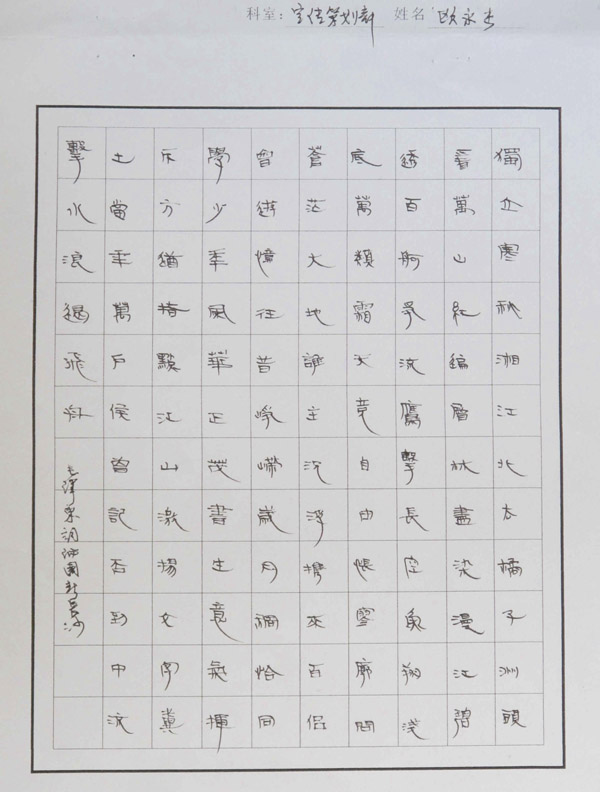 科室：宣传策划部 姓名：欧永
獨立寒秋湘江北去橘子洲頭
看萬山紅編層林盡染漫江碧
透百舸爭流鷹擊長空魚翔淺
底萬類霜天竟自由悵寥廓問
蒼茫大地誰主沉浮攜來百侶
曾遊憶往昔崢嶸歲月稠恰同
學少年風華正茂書生意氣揮
斥方猶指點江山激揚文字糞
土當年萬戶侯曾記否到中流
擊水浪遏飛舟
毛澤東詞沁園春長沙